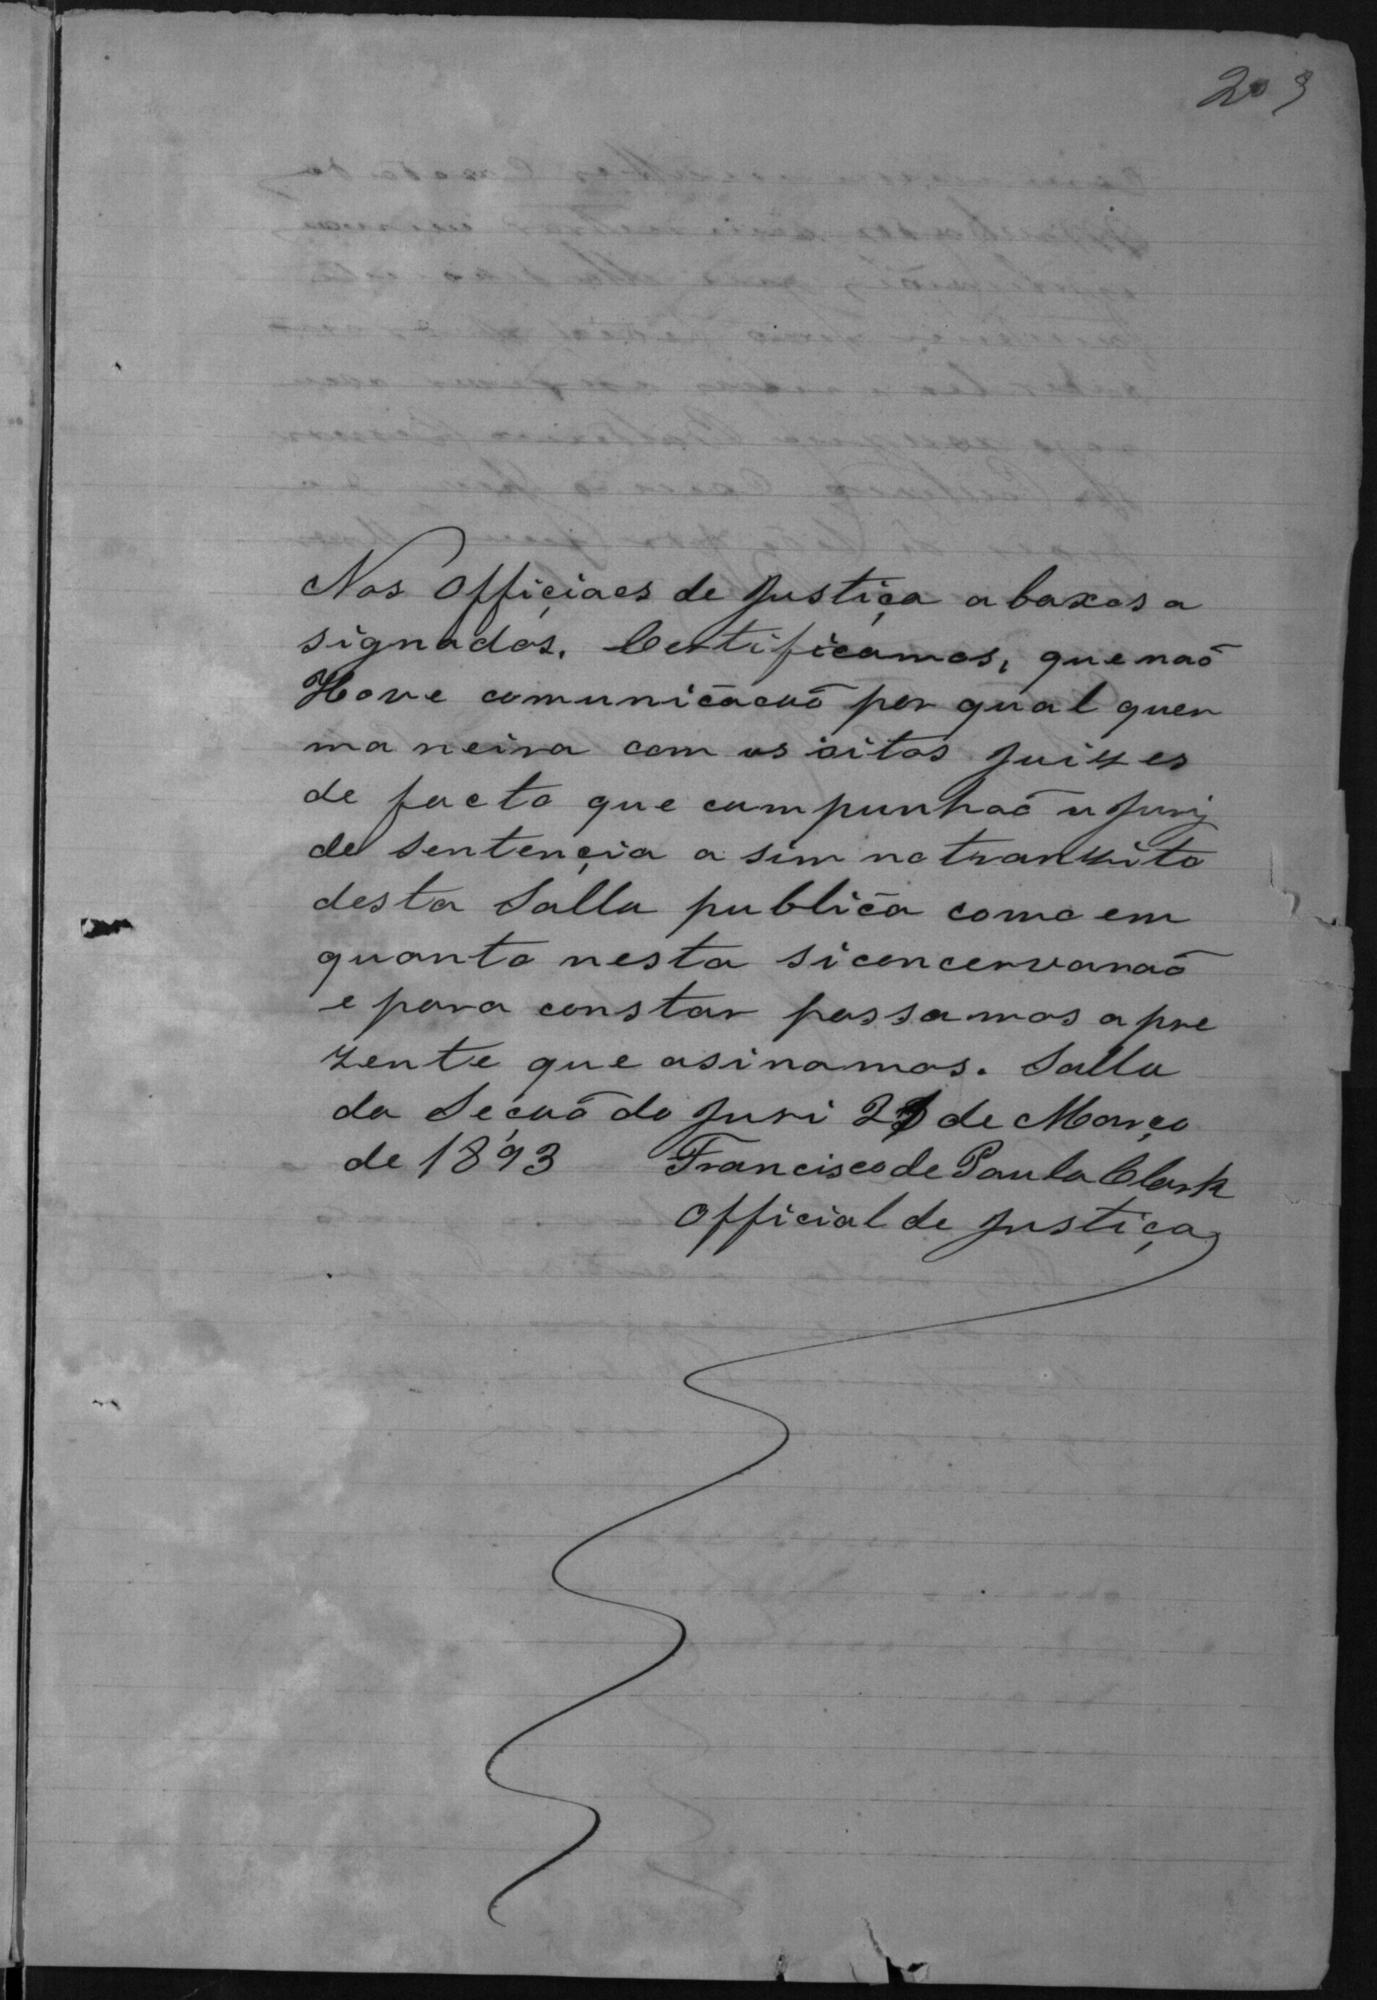 203
Nos Officiaes de Justiça abaxos a
signados. Certificamos, que naõ
Hove comunicacaõ por qual quer
maneira com os oitos Juizes
de facto que cumpunhaõ u Jurij
de sentençia a sim no tranzito
desta Salla publica como em
quanto nesta si concervaraõ
e para constar passamos a pre
zente que asinamos. Salla
da Seçaõ do Juri 21 de Março
de 1893 Francisco de Paula Clark
Official de Justiça